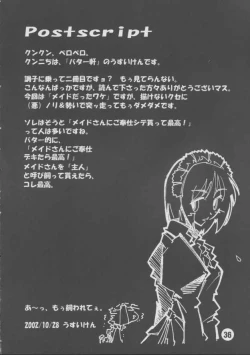 Postscript
クンクン、ペロペロ。
クンニちは、「バター軒」のうすいけんです。
調子に乗って二冊目ですョ? もぅ見てらんない。
こんなんばっかですが、読んで下さった方々ありがとうございマス。
今回は「メイドだったワケ」ですが、描けないクセに
(悪)ノリ&勢いで突っ走ってもぅダメダメです。
ソレはそうと「メイドさんにご奉仕シテ貰って最高!」
って人は多いですね。
バター的に、
「メイドさんにご奉仕
デキたら最高!」
メイドさんを「主人」
と呼び飼って貰えたら、
コレ最高。
あ〜っ、もぅ飼われてぇ。
2002/10/28 うすいけん
36